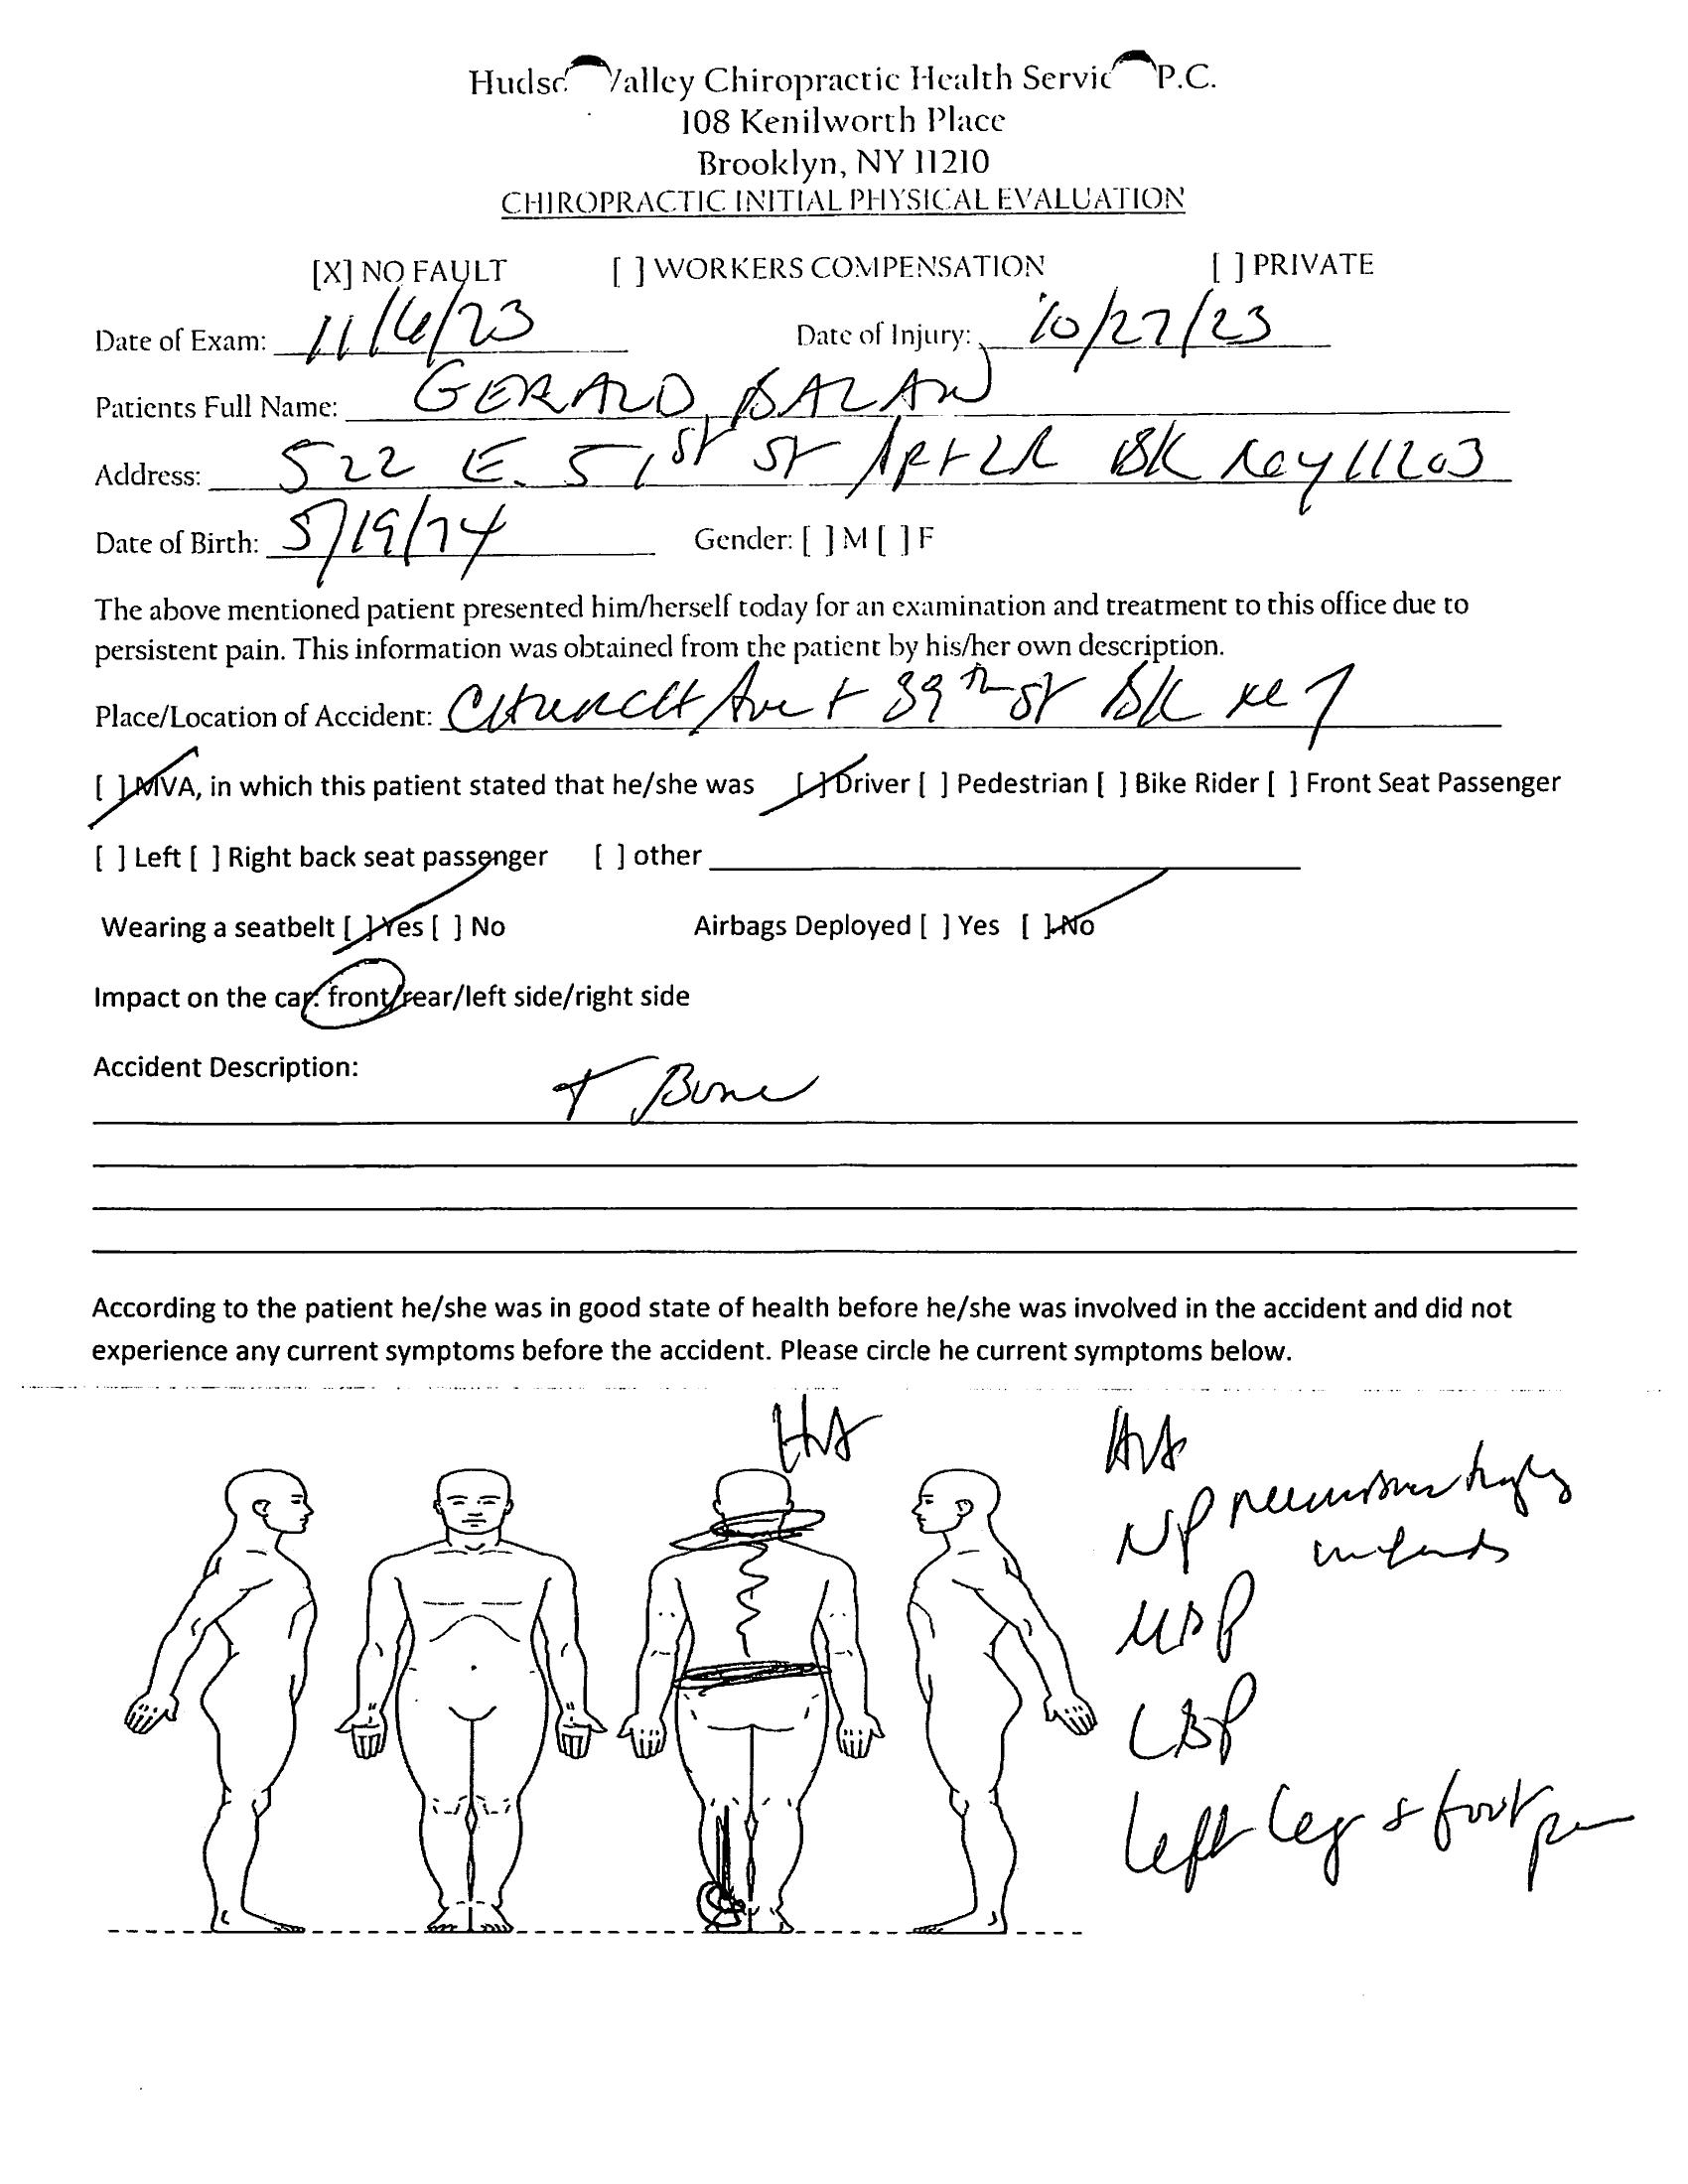 Hudso Valley Chiropractic Health Servic P.C.
108 Kenilworth Place
Brooklyn, NY 11210
CHIROPRACTIC INITIAL PHYSICAL EVALUATION
[X] NO FAULT [ ] WORKERS COMPENSATION [ ] PRIVATE
Date of Exam: 11/6/23 Date of Injury: 10/27/23
Patients Full Name: GERALD, BALAN
Address: 522 E. 51st St Apt 2R BK NY 11203
Date of Birth: 5/19/74 Gender: [ ] M [ ] F
The above mentioned patient presented him/herself today for an examination and treatment to this office due to
persistent pain. This information was obtained from the patient by his/her own description.
Place/Location of Accident: Church Ave + 39th St BK NY
[ ] MVA, in which this patient stated that he/she was [ ] Driver [ ] Pedestrian [ ] Bike Rider [ ] Front Seat Passenger
[ ] Left [ ] Right back seat passenger [ ] other
Wearing a seatbelt [ ] Yes [ ] No Airbags Deployed [ ] Yes [ ] No
Impact on the car: front/rear/left side/right side
Accident Description:
T Bone
According to the patient he/she was in good state of health before he/she was involved in the accident and did not
experience any current symptoms before the accident. Please circle he current symptoms below.
HA HA
NP
MBP
LBP
left leg & foot